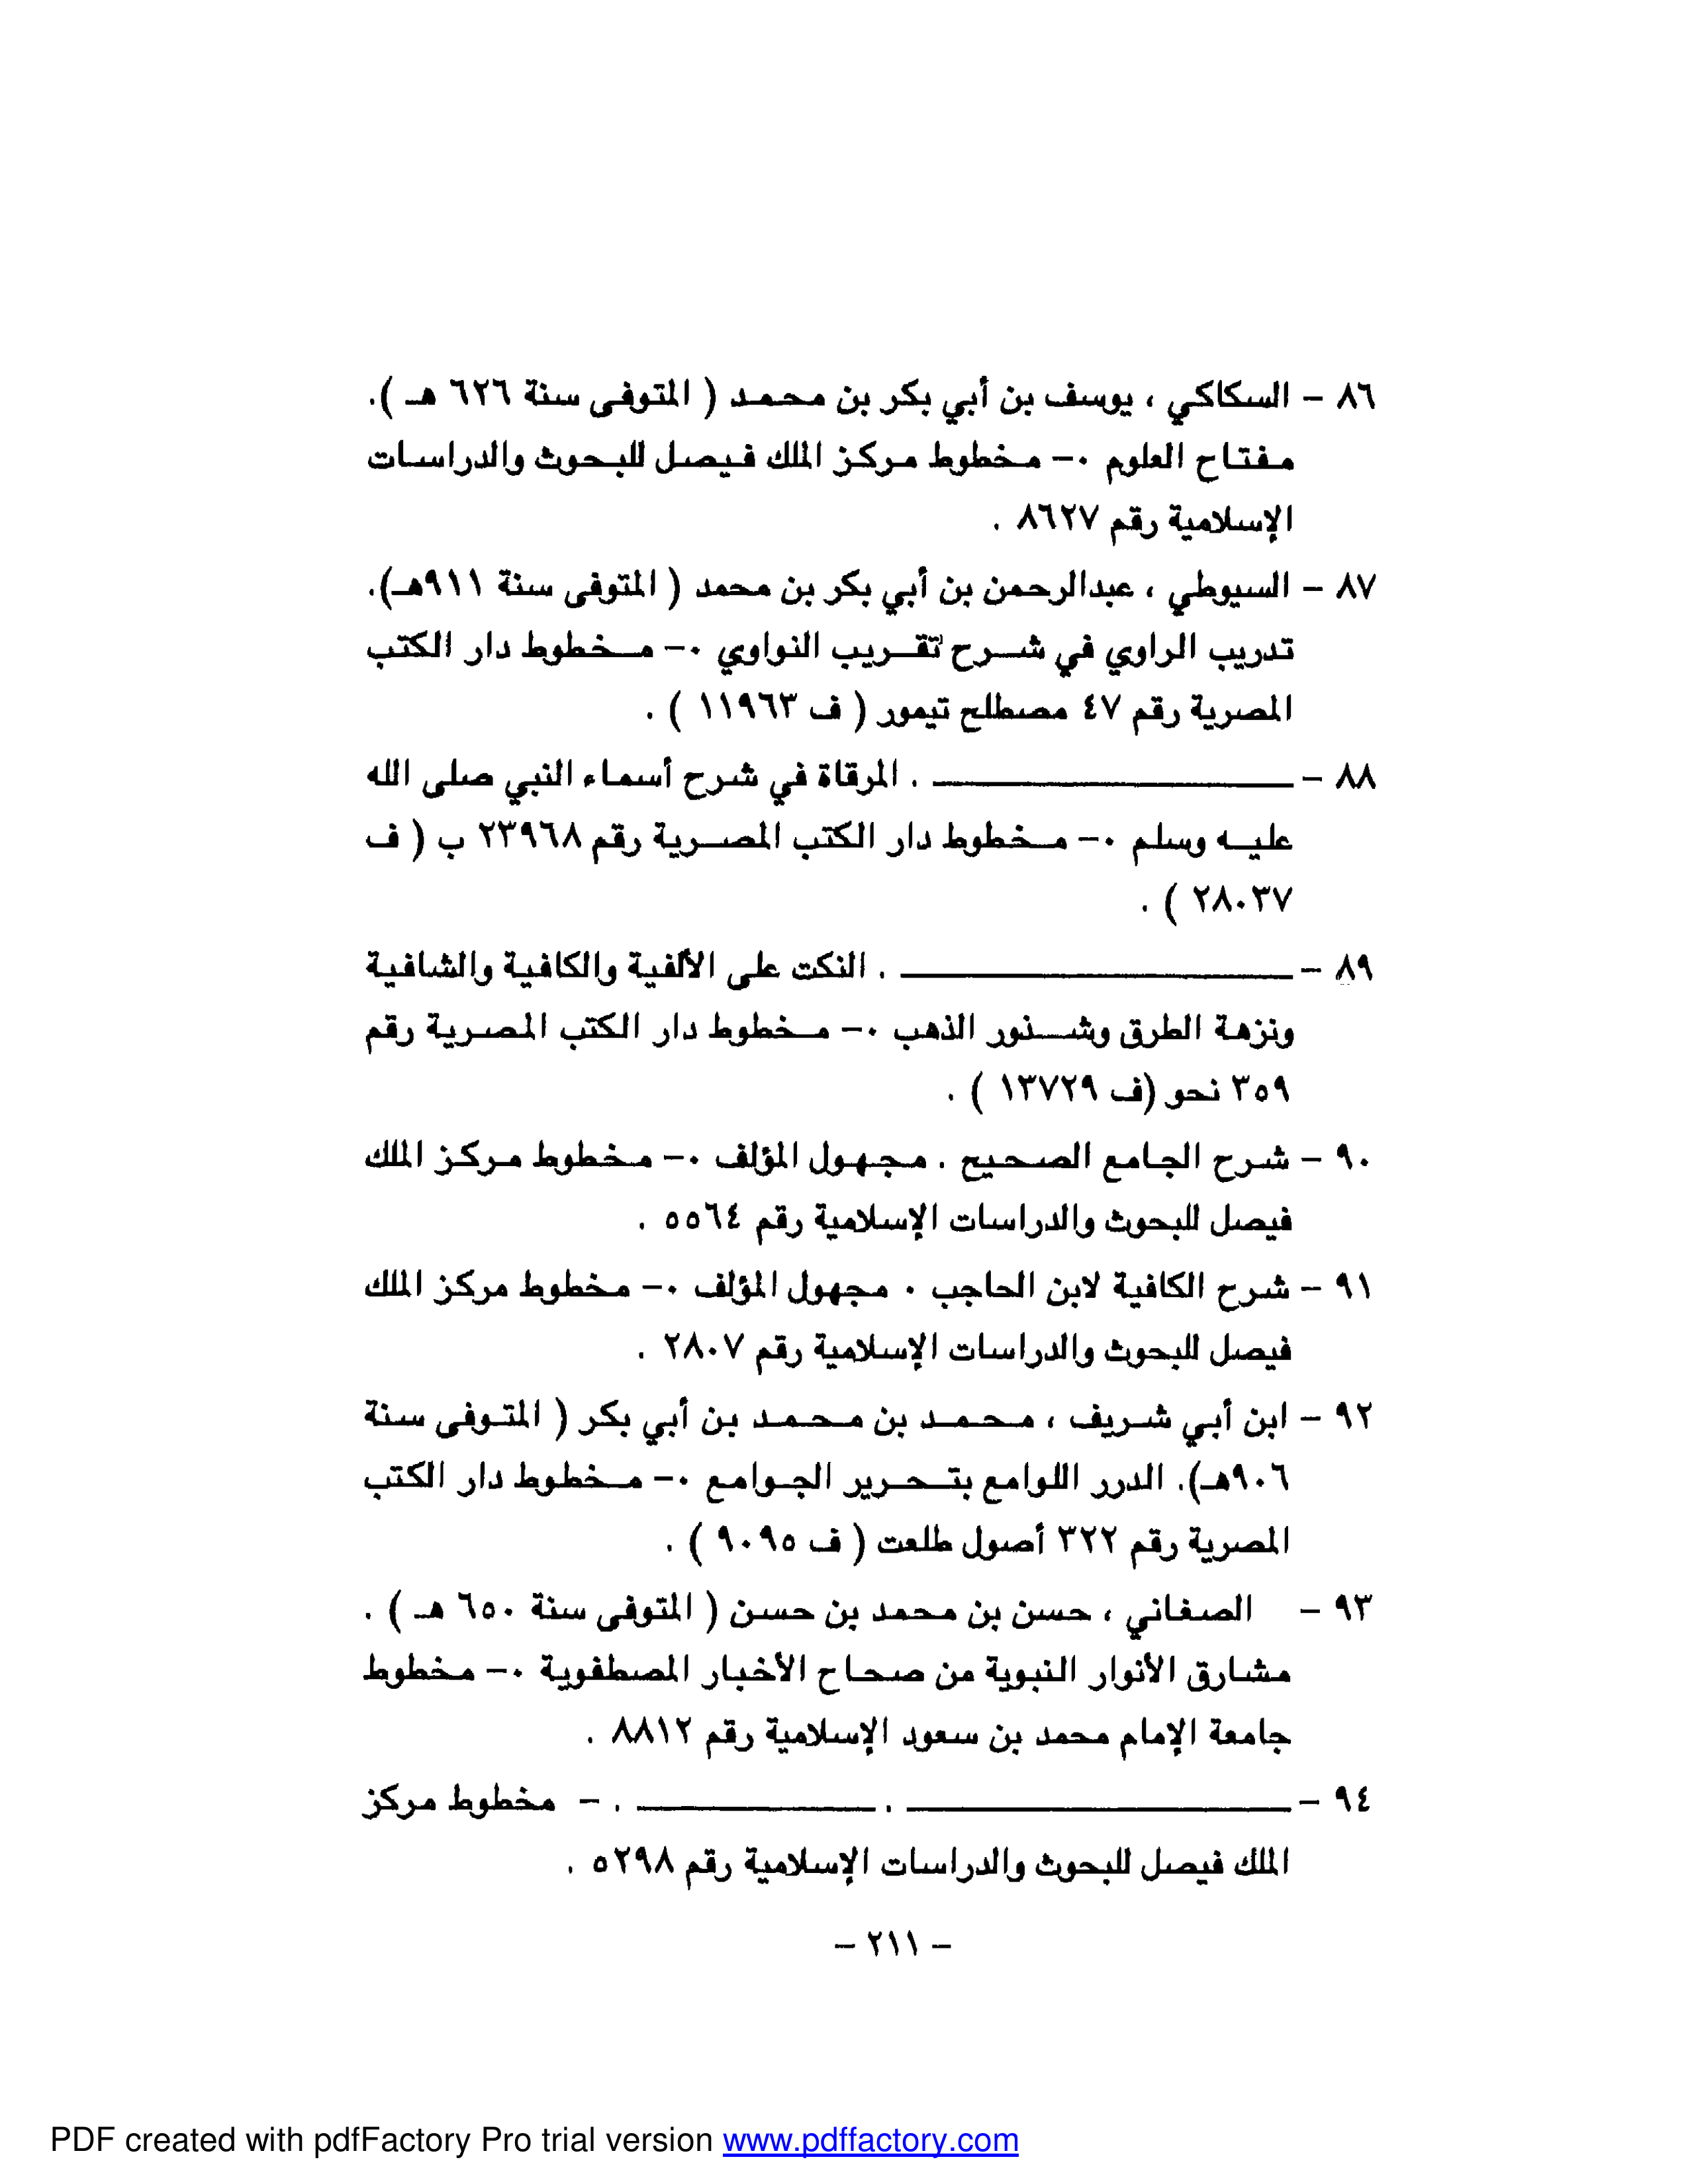 ٨٦ – السكاكي ، يوسف بن أبي بكر بن محمد ( المتوفى سنة ٦٢٦ هـ ).
مفتاح العلوم ٠– مخطوط مركز الملك فيصل للبحوث والدراسات
الإسلامية رقم ٨٦٢٧ .
٨٧ – السيوطي ، عبدالرحمن بن أبي بكر بن محمد ( المتوفى سنة ٩١١هـ).
تدريب الراوي في شرح تقريب النواوي ٠– مخطوط دار الكتب
المصرية رقم ٤٧ مصطلح تيمور ( ف ١١٩٦٣ ) .
٨٨ – ــــــــــــــــــــ . المرقاة في شرح أسماء النبي صلى الله
عليه وسلم ٠– مخطوط دار الكتب المصرية رقم ٢٣٩٦٨ ب ( ف
٢٨٠٣٧ ) .
٨٩ – ــــــــــــــــــــ . النكت على الألفية والكافية والشافية
ونزهة الطرق وشنور الذهب ٠– مخطوط دار الكتب المصرية رقم
٣٥٩ نحو (ف ١٣٧٢٩ ) .
٩٠ – شرح الجامع الصحيح . مجهول المؤلف ٠– مخطوط مركز الملك
فيصل للبحوث والدراسات الإسلامية رقم ٥٥٦٤ .
٩١ – شرح الكافية لابن الحاجب ٠ مجهول المؤلف ٠– مخطوط مركز الملك
فيصل للبحوث والدراسات الإسلامية رقم ٢٨٠٧ .
٩٢ – ابن أبي شريف ، محمد بن محمد بن أبي بكر ( المتوفى سنة
٩٠٦هـ). الدرر اللوامع بتحرير الجوامع ٠– مخطوط دار الكتب
المصرية رقم ٣٢٢ أصول طلعت ( ف ٩٠٩٥ ) .
٩٣ – الصغاني ، حسن بن محمد بن حسن ( المتوفى سنة ٦٥٠ هـ ) .
مشارق الأنوار النبوية من صحاح الأخبار المصطفوية ٠– مخطوط
جامعة الإمام محمد بن سعود الإسلامية رقم ٨٨١٢ .
٩٤ – ــــــــــــــــــــ . ــــــــــــــ . – مخطوط مركز
الملك فيصل للبحوث والدراسات الإسلامية رقم ٥٢٩٨ .
– ٢١١ –
PDF created with pdfFactory Pro trial version www.pdffactory.com